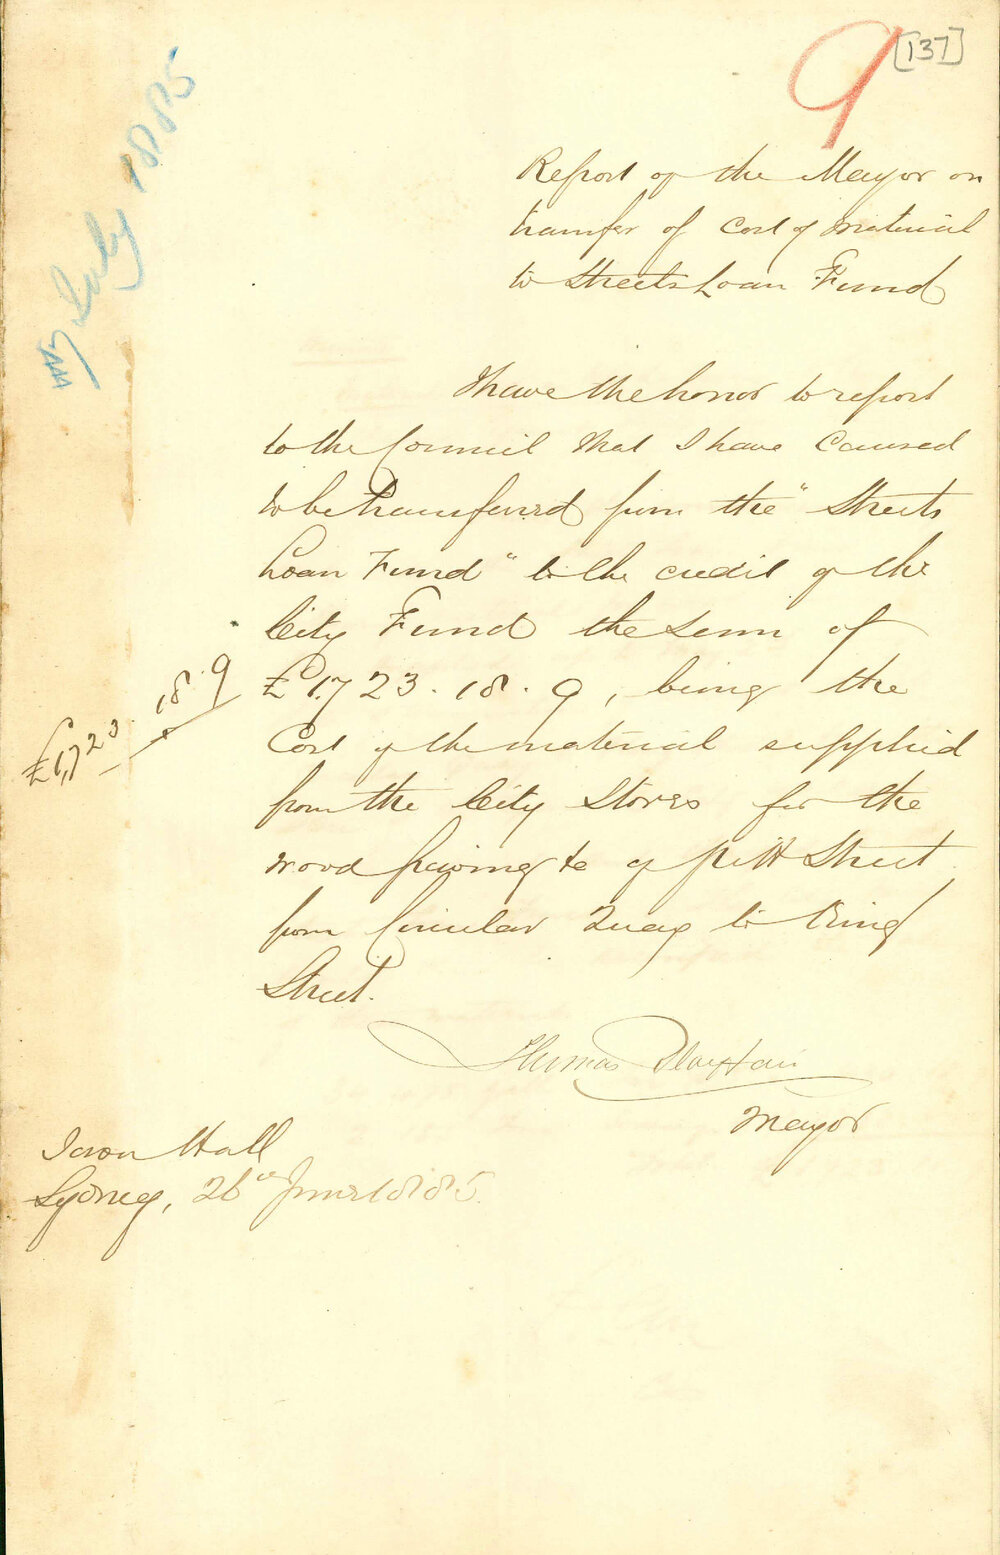 9 [137]
July 1885
Report of the Mayor on
transfer of Cost of material
to Streets Loan Fund
I have the honor to report
to the Council that I have Caused
to be transferred from the "Streets
Loan Fund" to the credit of the
City Fund the sum of
£1,723.18.9, being the
£1,723.18.9
Cost of the material supplied
from the City Stores for the
wood paving &c of Pitt Street
from Circular Quay to King
Street.
Thomas Playfair
Mayor
Town Hall
Sydney, 26th June 1885.